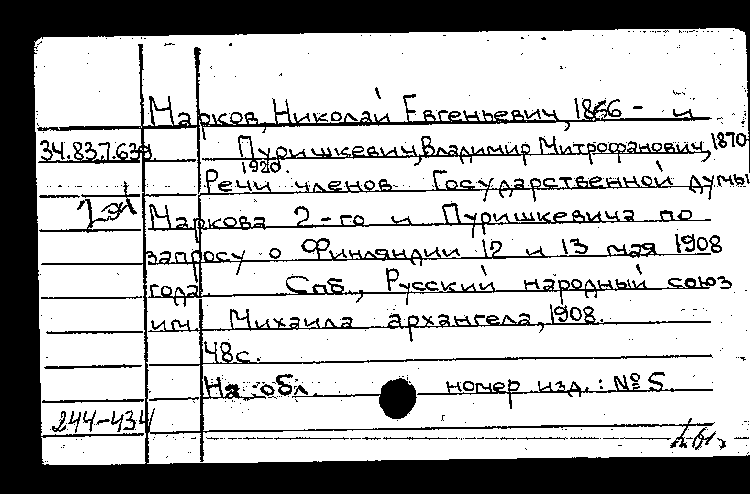 Марков, Николай Евгеньевич, 1866 - и
34.83.7.639
Пуришкевич, Владимир Митрофанович, 1870-
1920.
Речи членов Государственной думы
Маркова 2-го и Пуришкевича по
запросу о Финляндии 12 и 13 мая 1908
года. Спб., Русский народный союз
им. Михаила архангела, 1908.
48с.
На обл. номер изд.: №5.
244-434